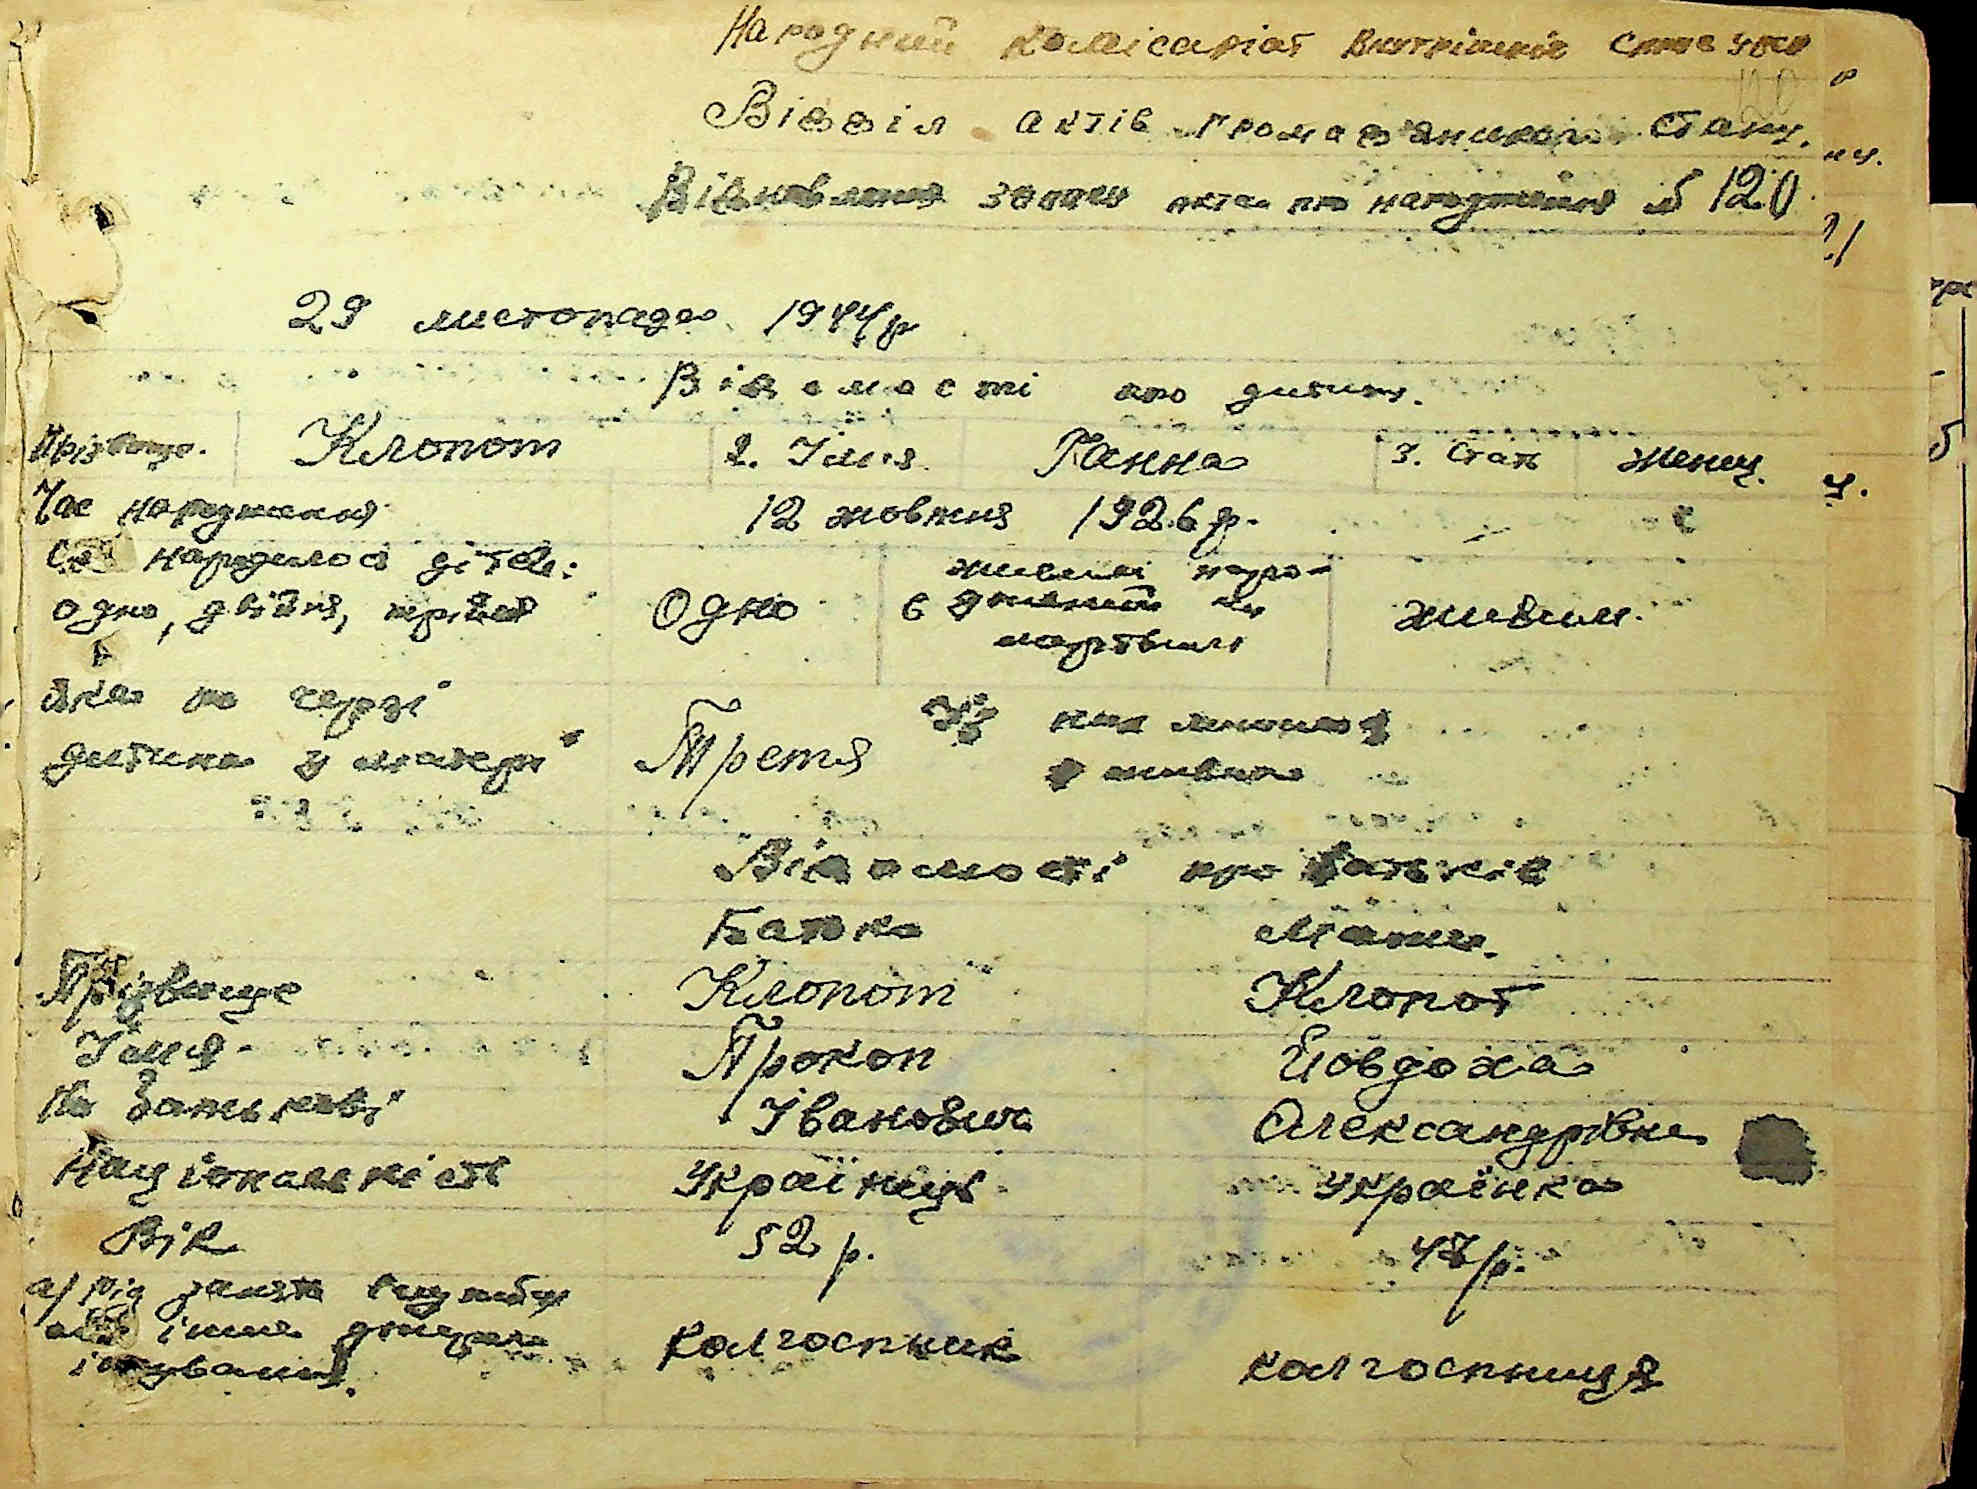 Народний комісаріат внутрішніх справ УРСР
Відділ актів громадянського стану.
Відновлення запису акта про народження № 120
29 листопада 1944 р
Відомості про дитину.
Прізвище. Клопот 2. Імя Ганна 3. Стать жіноч.
Час народження 12 жовтня 1926 р.
народилося дітей:
одно, двійня, трійня Одно 6 живими народжений чи мертвим живим.
Яка по черзі
дитина у матері Третя
Відомості про батьків
Батько Мати.
Прізвище Клопот Клопот
Імя Прокоп Йовдоха
По батькові Іванович Олександрівна
Національність Українець Українка
Вік 52 р. 47 р.
а/ рід занять службу
або інше джерело
існування. колгоспник колгоспниця